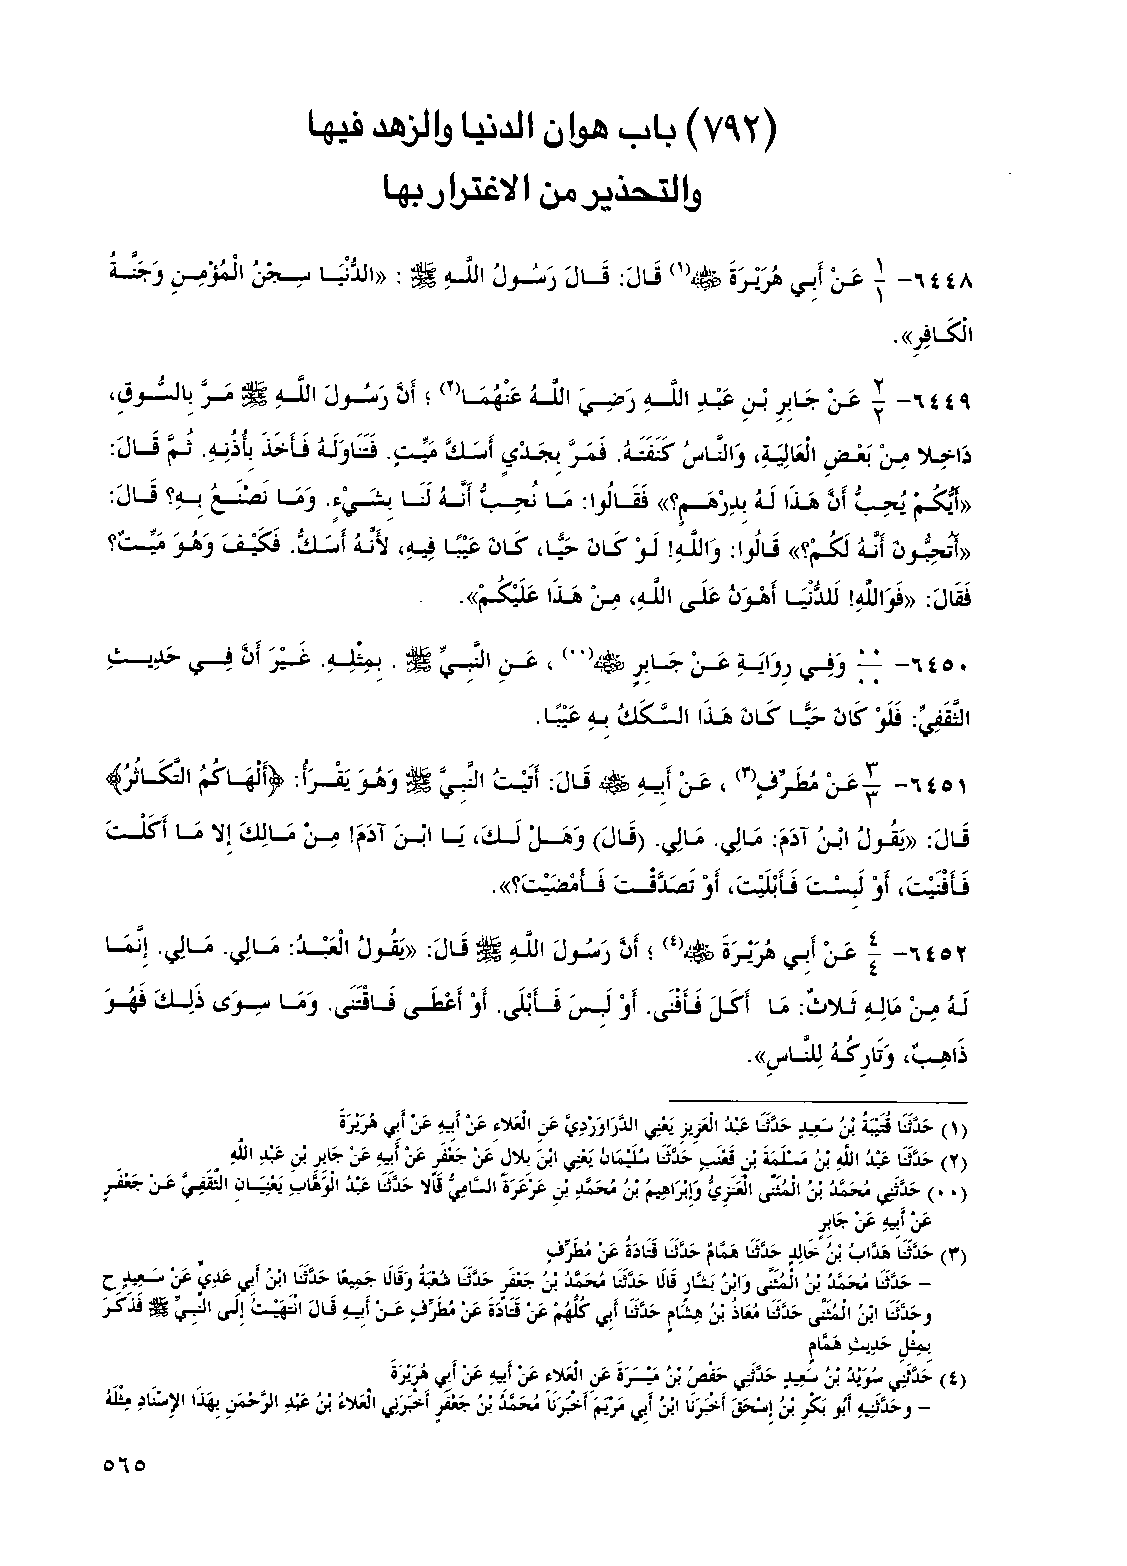 (٧٩٢) باب هوان الدنيا والزهد فيها
والتحذير من الاغترار بها
٦٤٤٨- ١/١ عَنْ أَبِي هُرَيْرَةَ ﷺ(١) قَالَ: قَالَ رَسُولُ اللَّهِ ﷺ : «الدُّنْيَا سِجْنُ الْمُؤْمِنِ وَجَنَّةُ
الْكَافِرِ».
٦٤٤٩- ٢/٢ عَنْ جَابِرِ بْنِ عَبْدِ اللَّهِ رَضِيَ اللَّهُ عَنْهُمَا(٢) ؛ أَنَّ رَسُولَ اللَّهِ ﷺ مَرَّ بِالسُّوقِ،
دَاخِلا مِنْ بَعْضِ الْعَالِيَةِ، وَالنَّاسُ كَنَفَتَهُ. فَمَرَّ بِجَدْيٍ أَسَكَّ مَيِّتٍ. فَتَنَاوَلَهُ فَأَخَذَ بِأُذُنِهِ. ثُمَّ قَالَ:
«أَيُّكُمْ يُحِبُّ أَنَّ هَذَا لَهُ بِدِرْهَمٍ؟» فَقَالُوا: مَا نُحِبُّ أَنَّهُ لَنَا بِشَيْءٍ. وَمَا نَصْنَعُ بِهِ؟ قَالَ:
«أَتُحِبُّونَ أَنَّهُ لَكُمْ؟» قَالُوا: وَاللَّهِ! لَوْ كَانَ حَيًّا، كَانَ عَيْبًا فِيهِ، لأَنَّهُ أَسَكُّ. فَكَيْفَ وَهُوَ مَيِّتٌ؟
فَقَالَ: «فَوَاللَّهِ! لَلدُّنْيَا أَهْوَنُ عَلَى اللَّهِ، مِنْ هَذَا عَلَيْكُمْ».
٦٤٥٠- ٠٠/٠٠ وَفِي رِوَايَةٍ عَنْ جَابِرٍ (٠٠) ، عَنِ النَّبِيِّ ﷺ . بِمِثْلِهِ. غَيْرَ أَنَّ فِي حَدِيثِ
الثَّقَفِيِّ: فَلَوْ كَانَ حَيًّا كَانَ هَذَا السَّكَكُ بِهِ عَيْبًا.
٦٤٥١- ٣/٣ عَنْ مُطَرِّفٍ(٣) ، عَنْ أَبِيهِ قَالَ: أَتَيْتُ النَّبِيَّ ﷺ وَهُوَ يَقْرَأُ: ﴿أَلْهَاكُمُ التَّكَاثُرُ﴾
قَالَ: «يَقُولُ ابْنُ آدَمَ: مَالِي. مَالِي. (قَالَ) وَهَلْ لَكَ، يَا ابْنَ آدَمَ! مِنْ مَالِكَ إِلا مَا أَكَلْتَ
فَأَفْنَيْتَ، أَوْ لَبِسْتَ فَأَبْلَيْتَ، أَوْ تَصَدَّقْتَ فَأَمْضَيْتَ؟».
٦٤٥٢- ٤/٤ عَنْ أَبِي هُرَيْرَةَ (٤) ؛ أَنَّ رَسُولَ اللَّهِ ﷺ قَالَ: «يَقُولُ الْعَبْدُ: مَالِي. مَالِي. إِنَّمَا
لَهُ مِنْ مَالِهِ ثَلاثٌ: مَا أَكَلَ فَأَفْنَى. أَوْ لَبِسَ فَأَبْلَى. أَوْ أَعْطَى فَاقْتَنَى. وَمَا سِوَى ذَلِكَ فَهُوَ
ذَاهِبٌ، وَتَارِكُهُ لِلنَّاسِ».
(١) حَدَّثَنَا قُتَيْبَةُ بْنُ سَعِيدٍ حَدَّثَنَا عَبْدُ الْعَزِيزِ يَعْنِي الدَّرَاوَرْدِيَّ عَنِ الْعَلاءِ عَنْ أَبِيهِ عَنْ أَبِي هُرَيْرَةَ
(٢) حَدَّثَنَا عَبْدُ اللَّهِ بْنُ مَسْلَمَةَ بْنِ قَعْنَبٍ حَدَّثَنَا سُلَيْمَانُ يَعْنِي ابْنَ بِلالٍ عَنْ جَعْفَرٍ عَنْ أَبِيهِ عَنْ جَابِرِ بْنِ عَبْدِ اللَّهِ
(٠٠) حَدَّثَنِي مُحَمَّدُ بْنُ الْمُثَنَّى الْعَنَزِيُّ وَإِبْرَاهِيمُ بْنُ مُحَمَّدِ بْنِ عَرْعَرَةَ السَّامِيُّ قَالا حَدَّثَنَا عَبْدُ الْوَهَّابِ يَعْنِيَانِ الثَّقَفِيَّ عَنْ جَعْفَرٍ
عَنْ أَبِيهِ عَنْ جَابِرٍ
(٣) حَدَّثَنَا هَدَّابُ بْنُ خَالِدٍ حَدَّثَنَا هَمَّامٌ حَدَّثَنَا قَتَادَةُ عَنْ مُطَرِّفٍ
– حَدَّثَنَا مُحَمَّدُ بْنُ الْمُثَنَّى وَابْنُ بَشَّارٍ قَالَا حَدَّثَنَا مُحَمَّدُ بْنُ جَعْفَرٍ حَدَّثَنَا شُعْبَةُ وَقَالَا جَمِيعًا حَدَّثَنَا ابْنُ أَبِي عَدِيٍّ عَنْ سَعِيدٍ ح
وحَدَّثَنَا ابْنُ الْمُثَنَّى حَدَّثَنَا مُعَاذُ بْنُ هِشَامٍ حَدَّثَنَا أَبِي كُلُّهُمْ عَنْ قَتَادَةَ عَنْ مُطَرِّفٍ عَنْ أَبِيهِ قَالَ انْتَهَيْتُ إِلَى النَّبِيِّ ﷺ فَذَكَرَ
بِمِثْلِ حَدِيثِ هَمَّامٍ
(٤) حَدَّثَنِي سُوَيْدُ بْنُ سَعِيدٍ حَدَّثَنِي حَفْصُ بْنُ مَيْسَرَةَ عَنِ الْعَلاءِ عَنْ أَبِيهِ عَنْ أَبِي هُرَيْرَةَ
– وحَدَّثَنِيهِ أَبُو بَكْرِ بْنُ إِسْحَقَ أَخْبَرَنَا ابْنُ أَبِي مَرْيَمَ أَخْبَرَنَا مُحَمَّدُ بْنُ جَعْفَرٍ أَخْبَرَنِي الْعَلاءُ بْنُ عَبْدِ الرَّحْمَنِ بِهَذَا الإِسْنَادِ مِثْلَهُ
٥٦٥